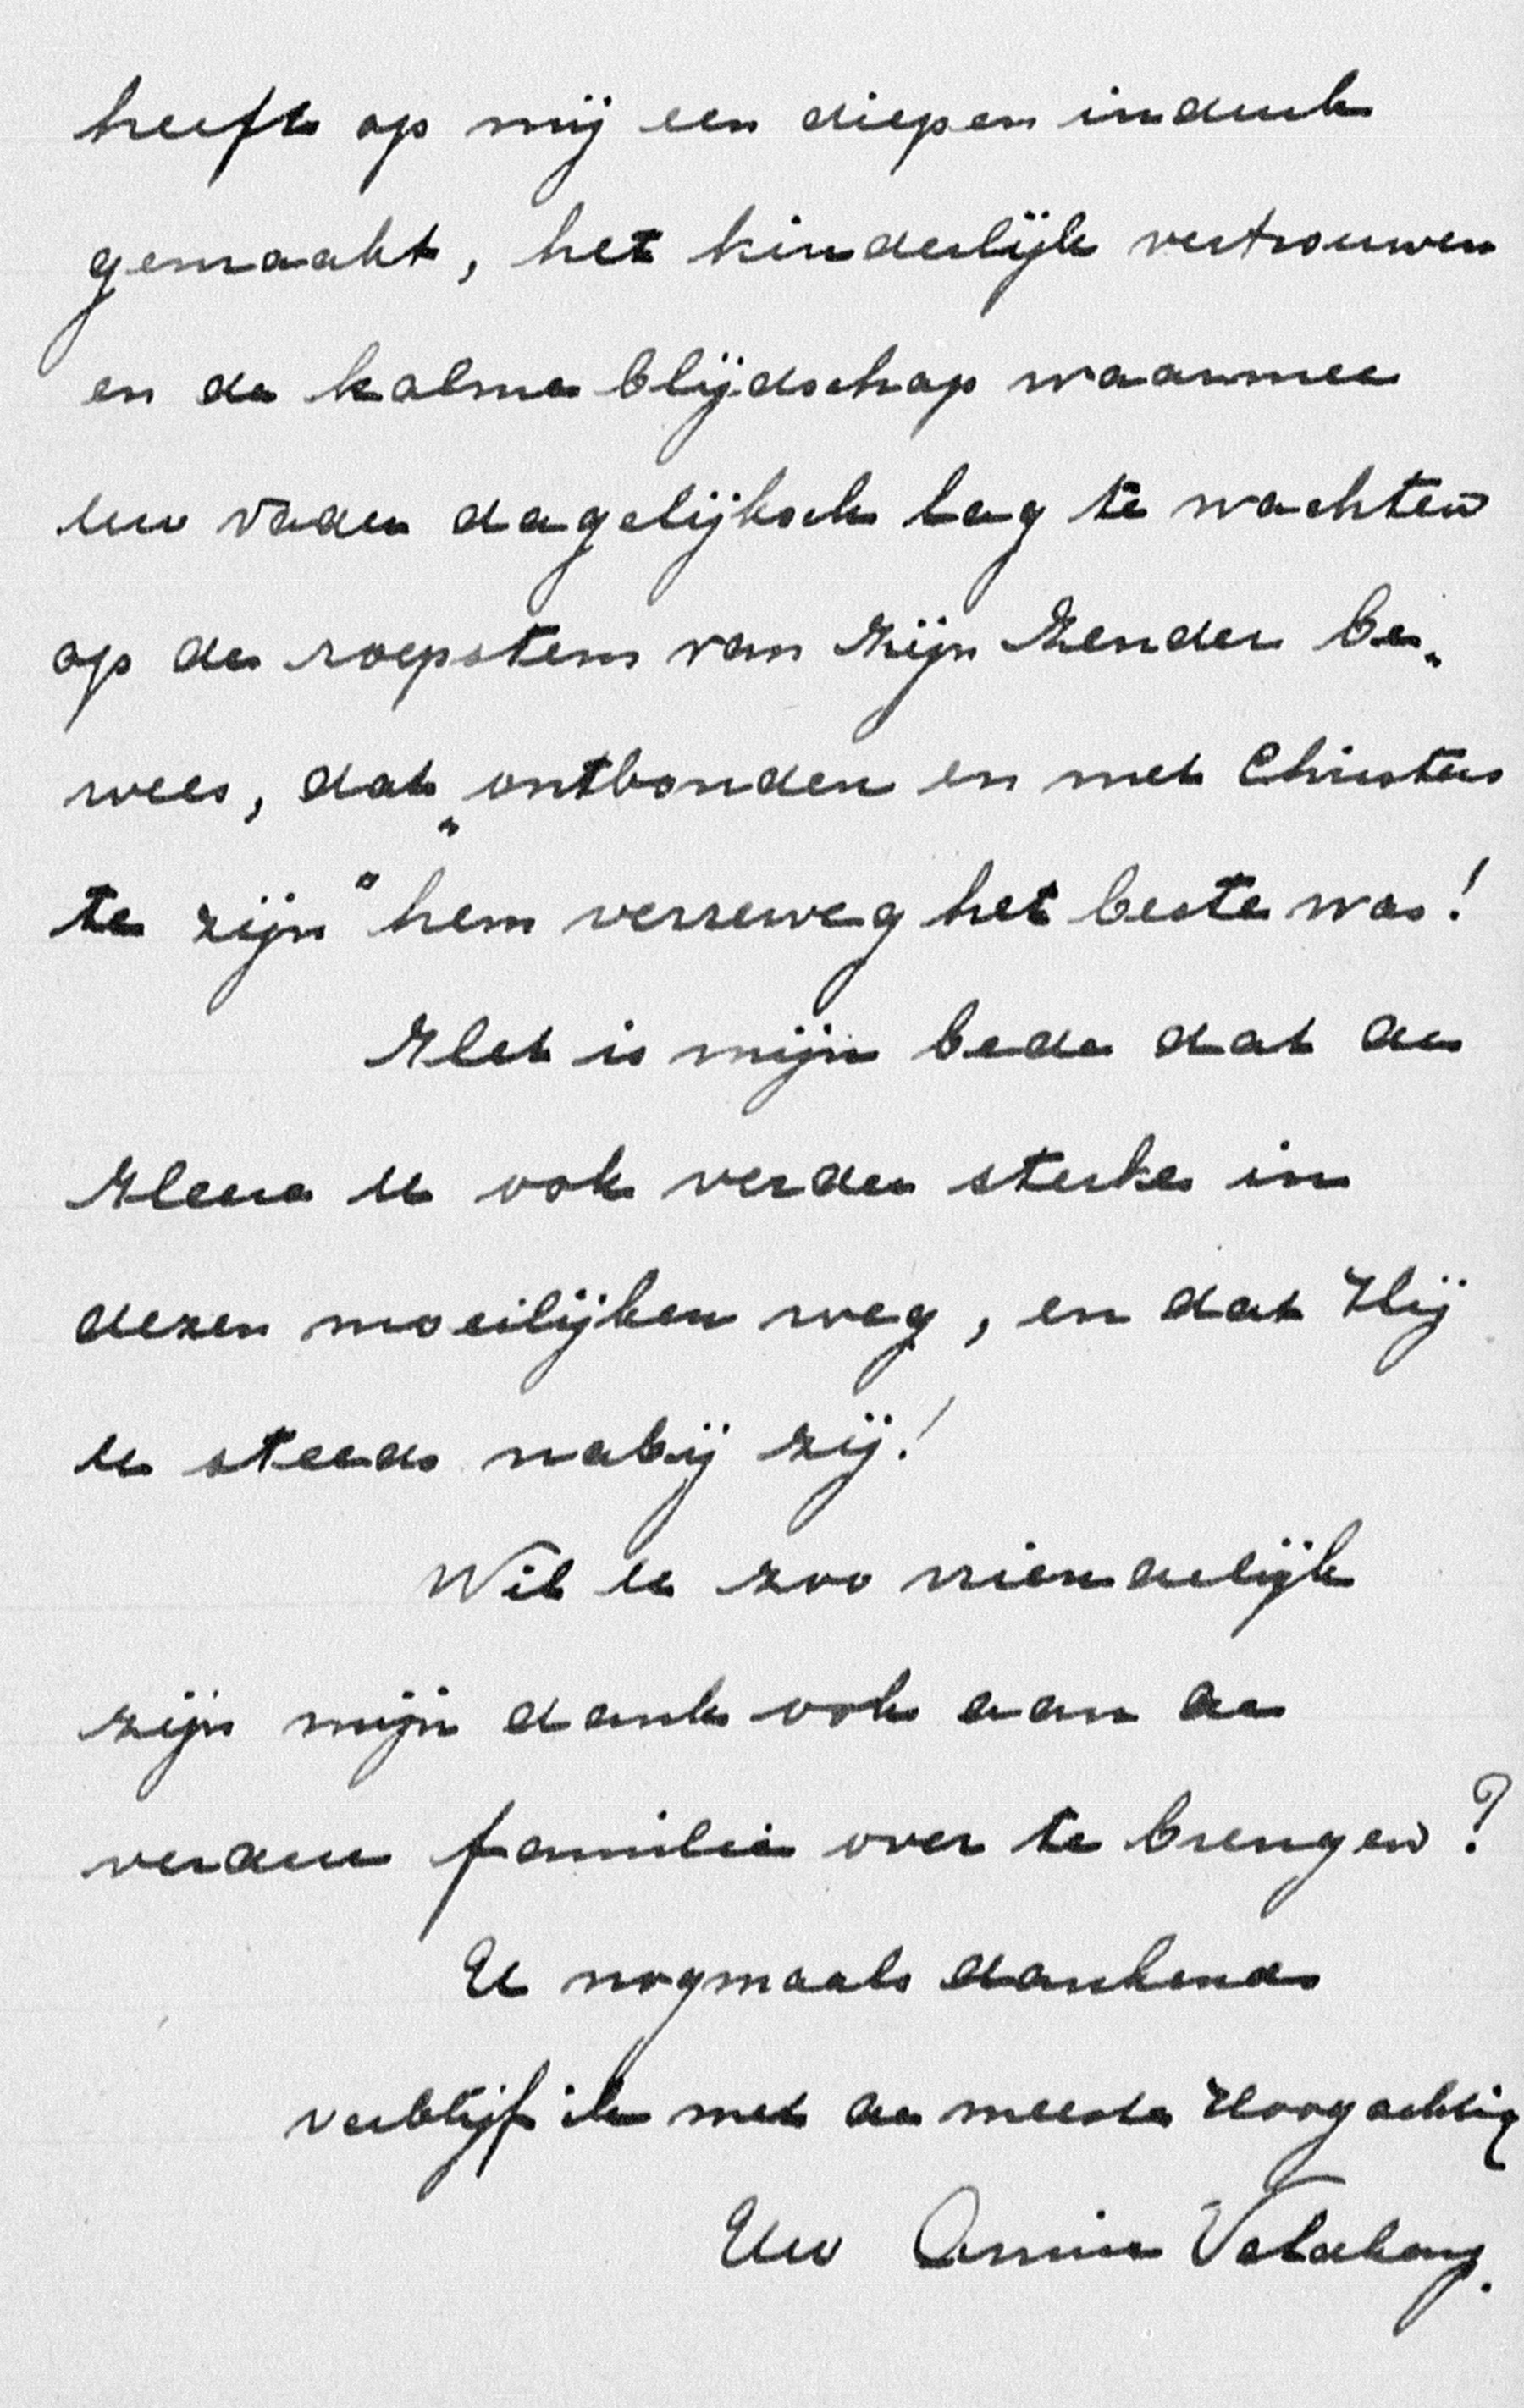 heeft op mij een diepen indruk
gemaakt, het kinderlijk vertrouwen
en de kalme blijdschap waarmee
uw vader dagelijksch lag te wachten
op de roepstem van zijn Zender be„
wees, dat „ontbonden en met Christus
te zijn" hem verreweg het beste was!
Het is mijn bede dat de
Heere u ook verder sterke in
dezen moeilijken weg, en dat Hij
u steeds nabij zij!
Wil u zoo vriendelijk
zijn mijn dank ook aan de
verdere familie over te brengen?
U nogmaals dankend
verblijf ik met de meeste Hoogachting
Uw Annie